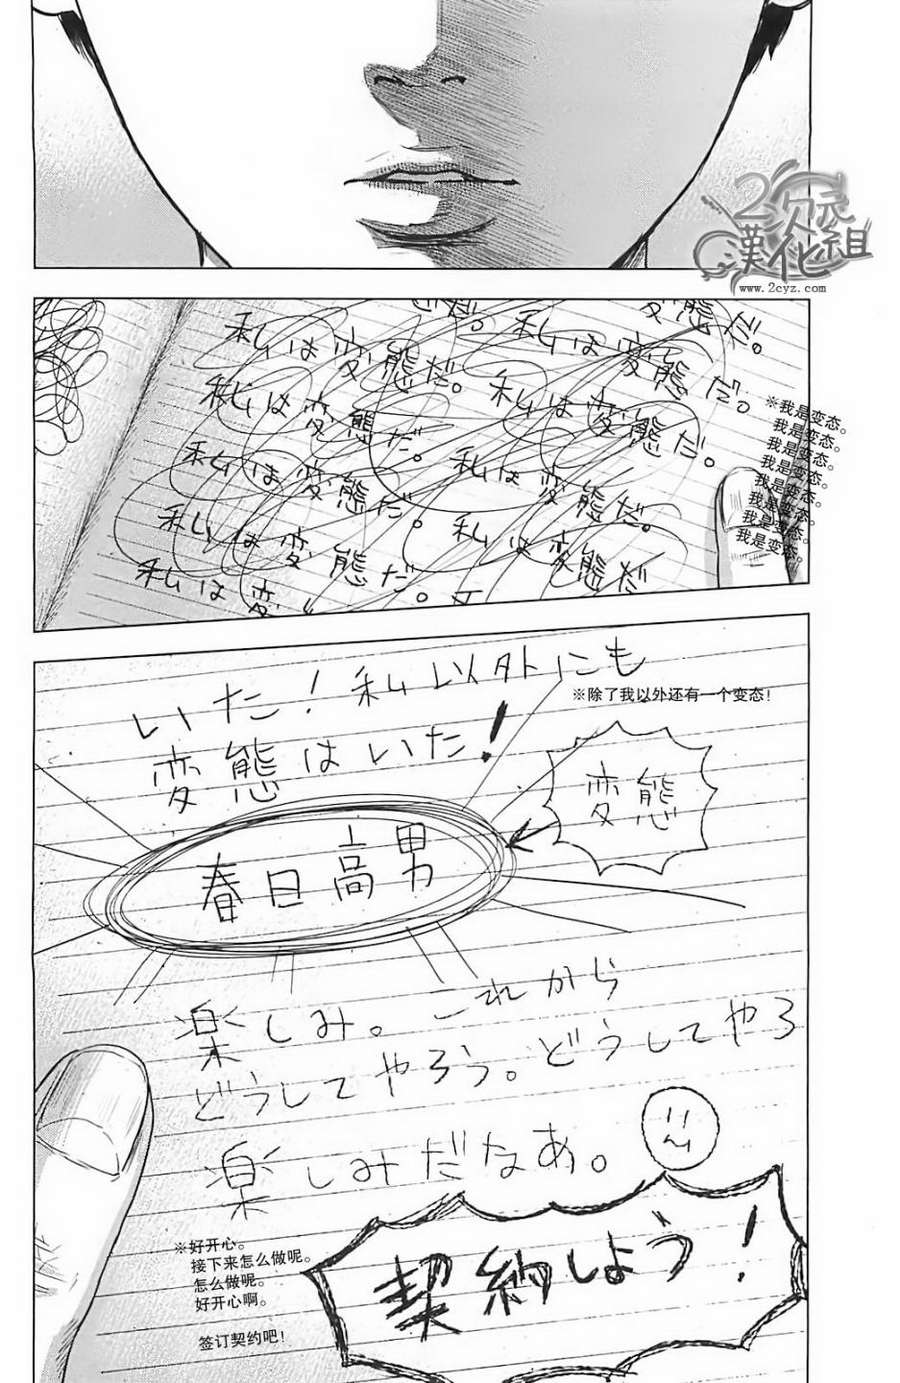 2次元
漢化組
www.2cyz.com
変態だ。
私は変態だ。
私は変態だ。
私は変態だ。
私は変態だ。
私は変態だ。
私は変態だ。
私は変態だ。
私は変態だ。
私は変態だ。
私は変
※我是变态。
我是变态。
我是变态。
我是变态。
我是变态。
我是变态。
我是变态。
我是变态。
いた!私以外にも
変態はいた!
※除了我以外还有一个变态!
変態
春日高男
楽しみ。これから
どうしてやろう。どうしてやろ
楽しみだなあ。
※好开心。
接下来怎么做呢。
怎么做呢。
好开心啊。
签订契约吧!
契約しよう!